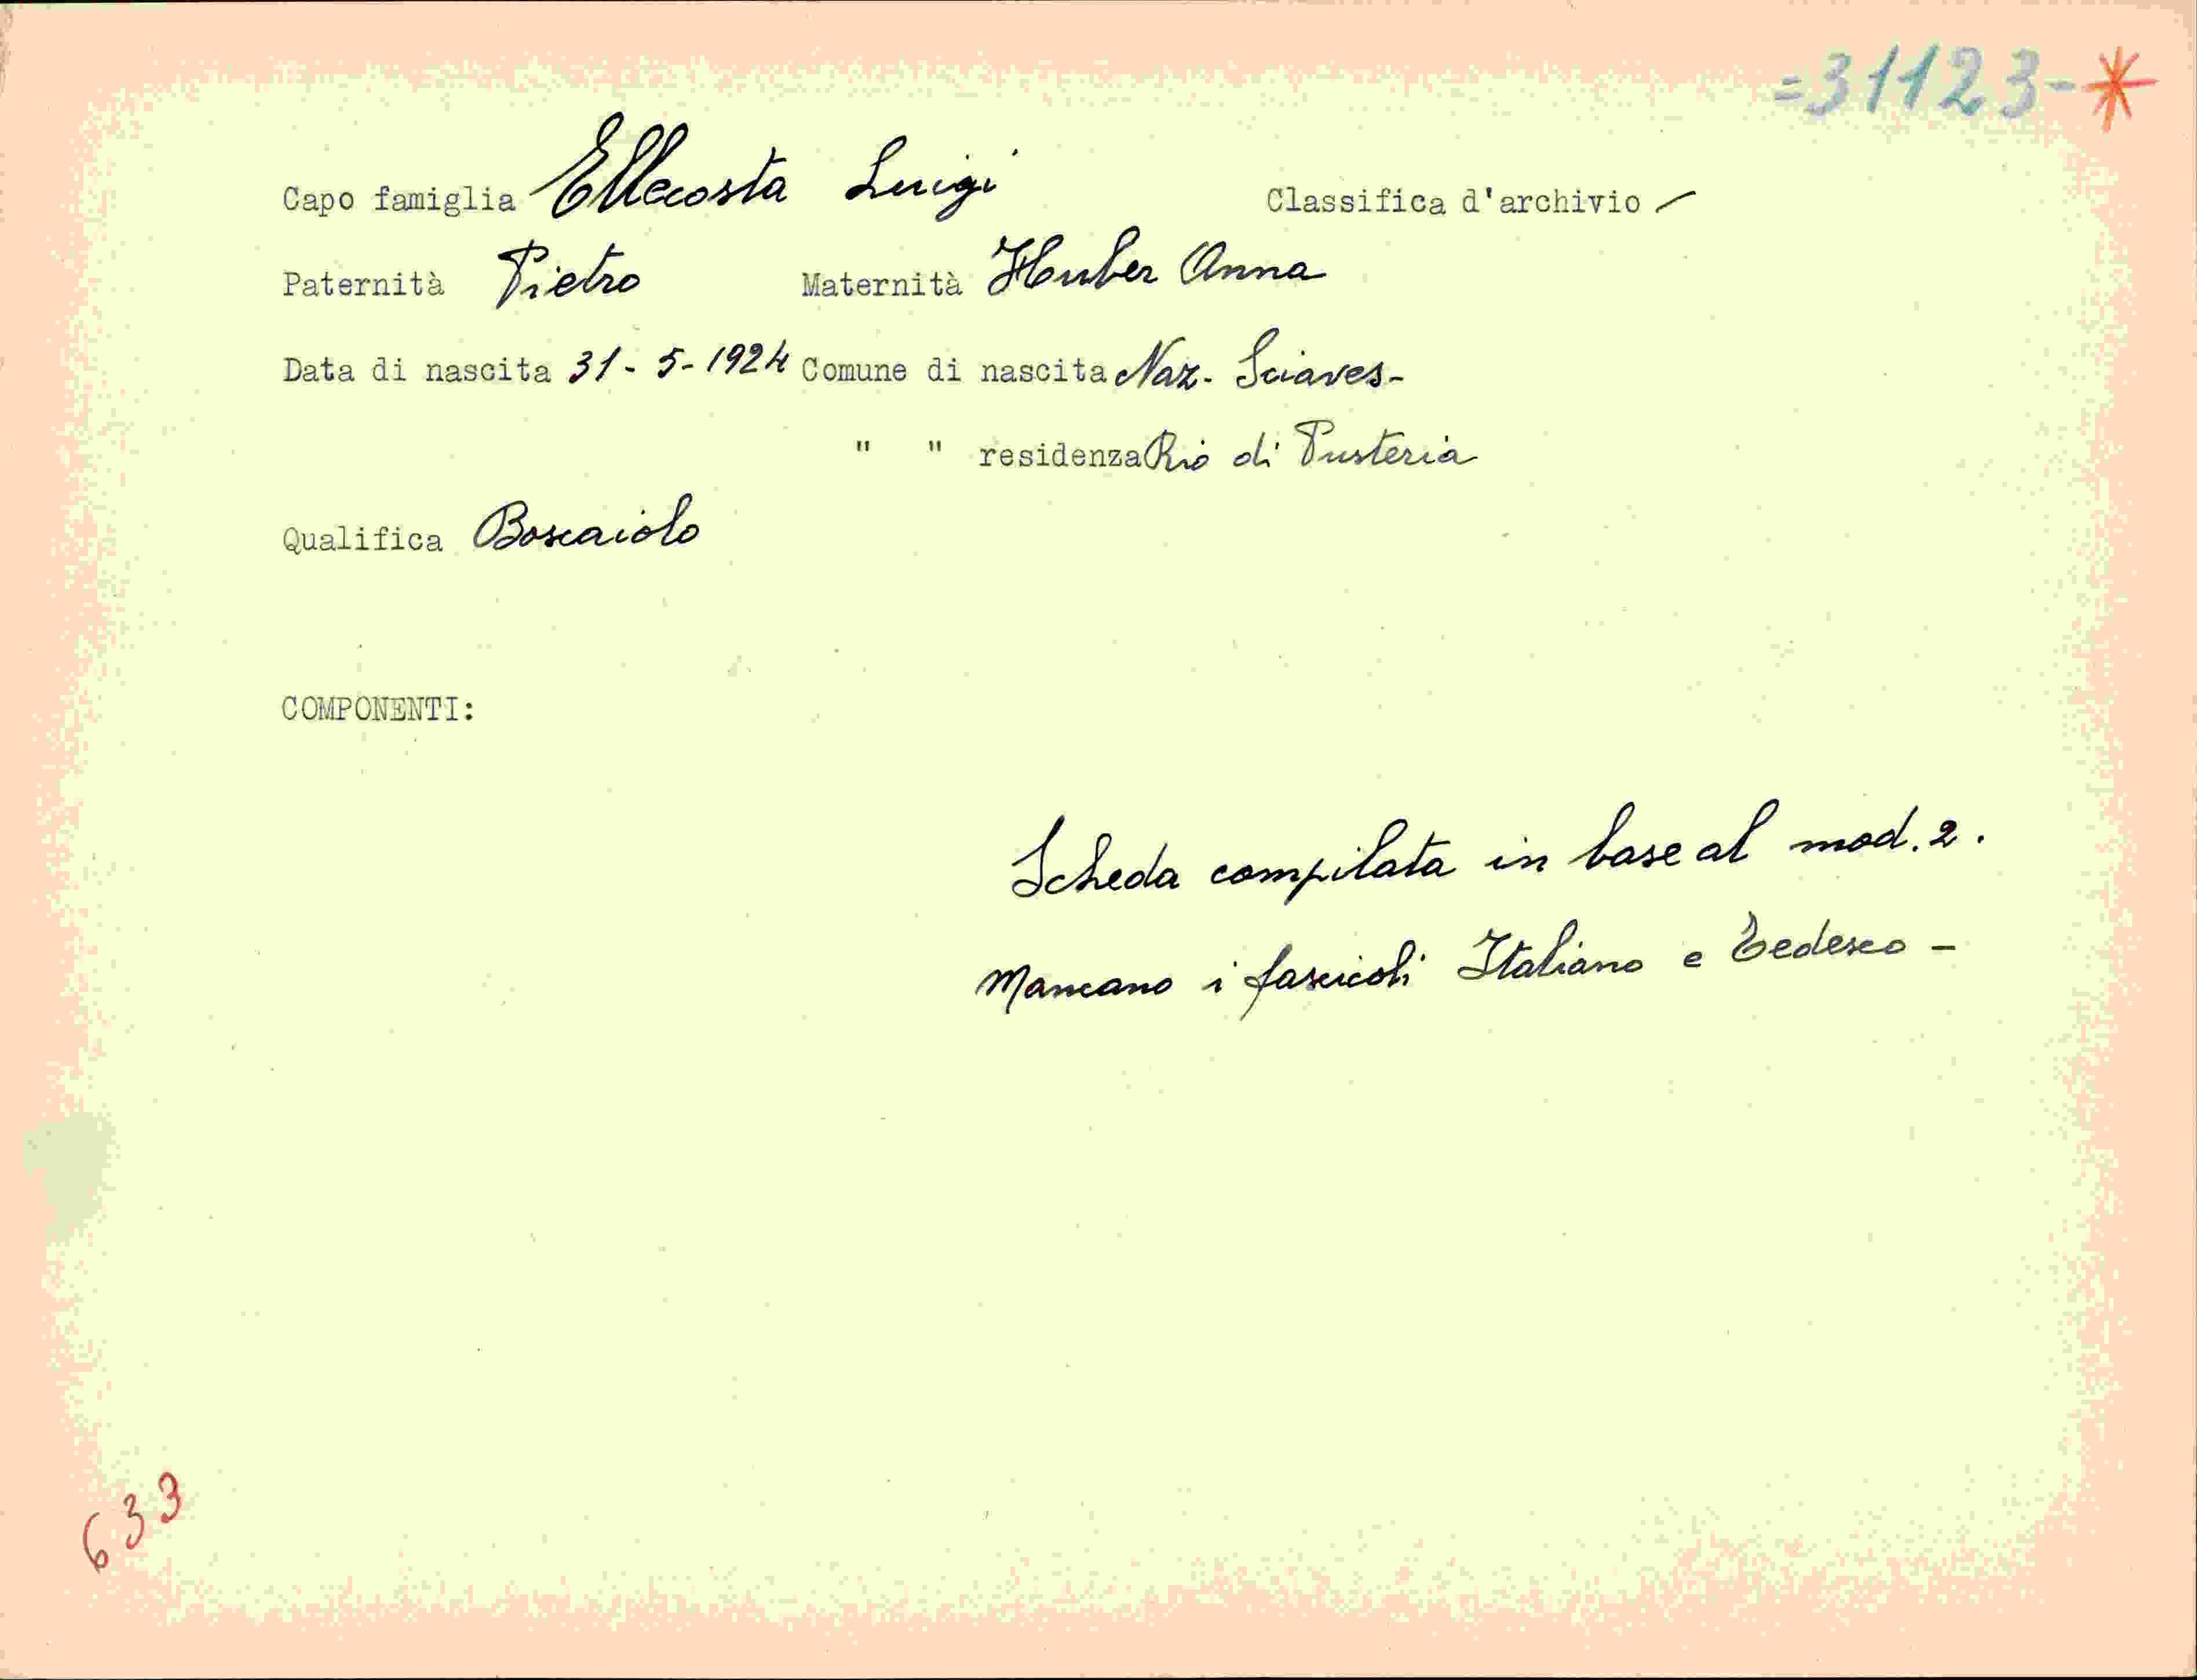 =31123-*
Capo famiglia Ellecosta Luigi Classifica d'archivio /
Paternità Pietro Maternità Huber Anna
Data di nascita 31-5-1924 Comune di nascita Naz-Sciaves-
" " residenza Rio di Pusteria
Qualifica Boscaiolo
COMPONENTI:
Scheda compilata in base al mod. 2.
Mancano i fascicoli Italiano e Tedesco -
633